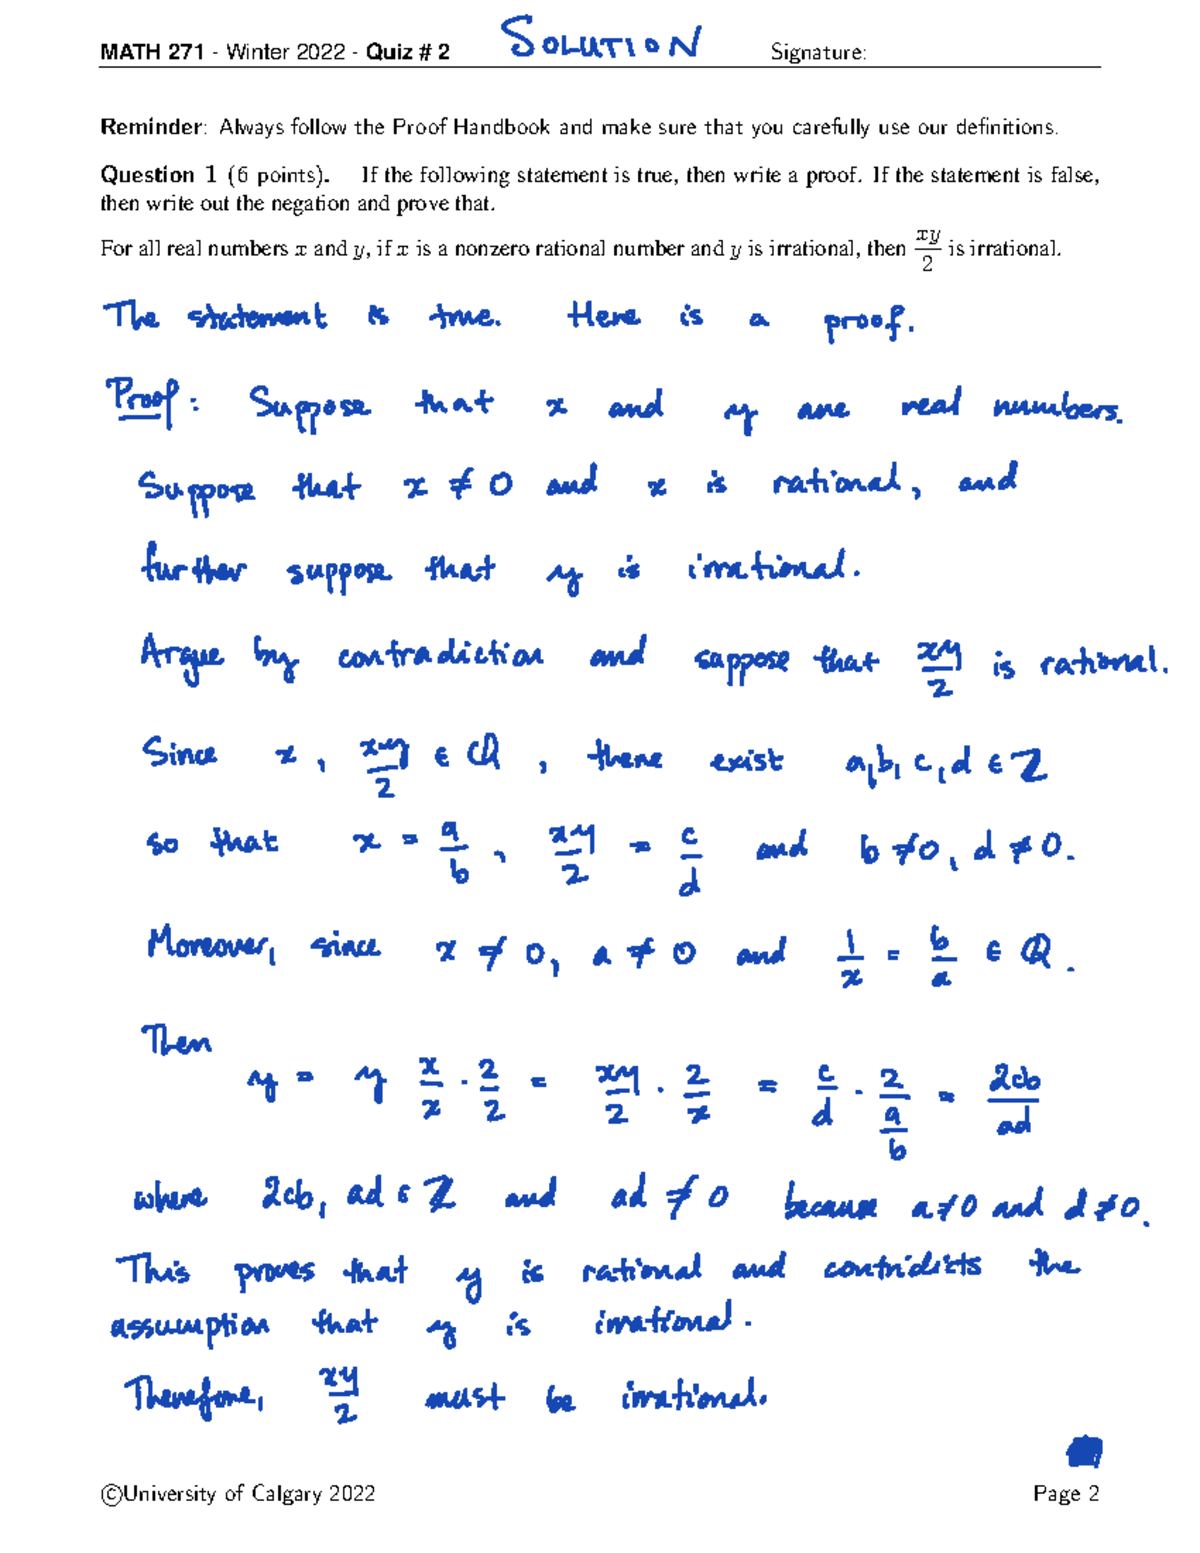 MATH 271 - Winter 2022 - Quiz # 2 SOLUTION Signature:
Reminder: Always follow the Proof Handbook and make sure that you carefully use our definitions.
Question 1 (6 points). If the following statement is true, then write a proof. If the statement is false,
then write out the negation and prove that.
For all real numbers x and y, if x is a nonzero rational number and y is irrational, then xy/2 is irrational.
The statement is true. Here is a proof.
Proof: Suppose that x and y are real numbers.
Suppose that x ≠ 0 and x is rational, and
further suppose that y is irrational.
Argue by contradiction and suppose that xy/2 is rational.
Since x, xy/2 ∈ ℚ, there exist a, b, c, d ∈ ℤ
so that x = a/b, xy/2 = c/d and b ≠ 0, d ≠ 0.
Moreover, since x ≠ 0, a ≠ 0 and 1/x = b/a ∈ ℚ.
Then
y = y x/x · 2/2 = xy/2 · 2/x = c/d · 2/(a/b) = 2cb/ad
where 2cb, ad ∈ ℤ and ad ≠ 0 because a ≠ 0 and d ≠ 0.
This proves that y is rational and contridicts the
assumption that y is irrational.
Therefore, xy/2 must be irrational.
©University of Calgary 2022 Page 2